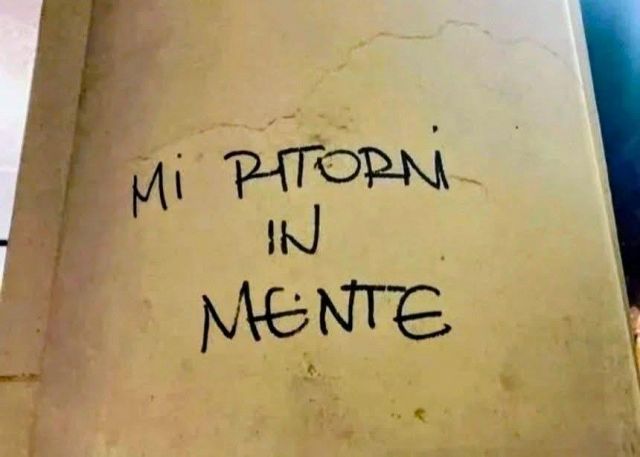 Mi RITORNi
IN
MENTE